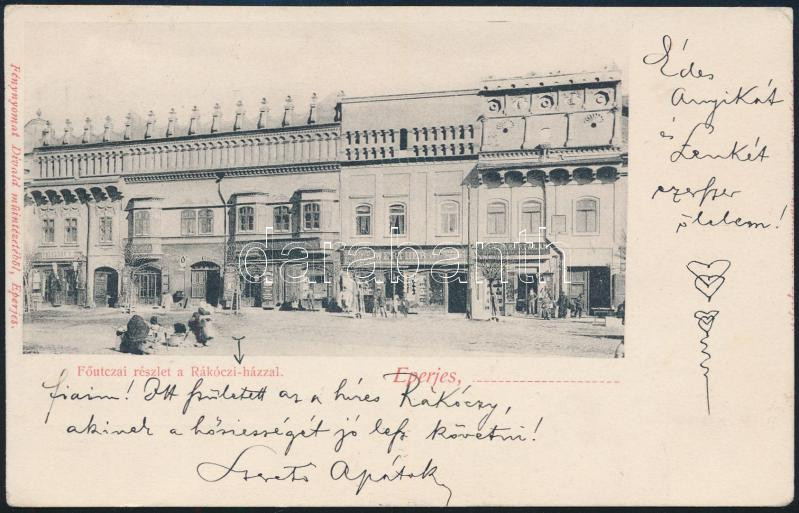 Édes
Anyikát
és
Lenkét
ezerszer
ölelem!
Fénynyomat Divald műintézetéből, Eperjes.
darabanth
Főutczai részlet a Rákóczi-házzal.
Eperjes,
fiaim! Itt született az a híres Rakóczy,
akinek a hősiességét jó lesz követni!
Szerető Apátok